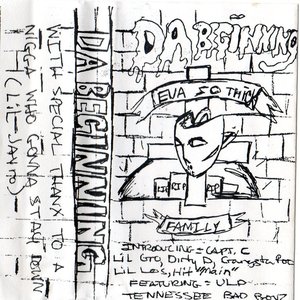 WITH SPECIAL THANX TO A
NIGGA WHO GONNA STAY DOWN
DA BEGINNING
DA BEGINNING
EVA SO THICK
RIP
RIP
FAMILY
INTRODUCING = CAPT. C
LIL GTO, DIRTY D, Gangsta Poo
LIL Les, Hit "main"
FEATURING = ULP
TENNESSEE BAD BOYZ